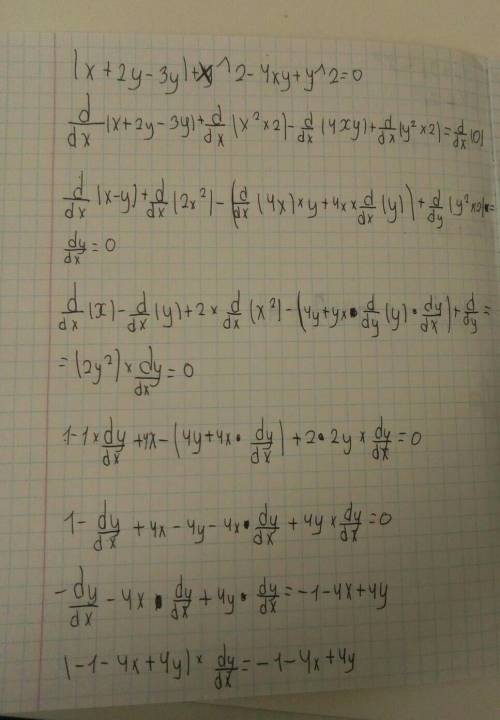 (x+2y-3y)+x^2-4xy+y^2=0
d/dx (x+2y-3y)+d/dx (x²×2)-d/dx (4xy)+d/dx (y²×2)=d/dx (0)
d/dx (x-y)+d/dx (2x²)-(d/dx (4x)×y+4x×d/dx (y))+d/dy (y²×2)×=
dy/dx =0
d/dx (x)-d/dx (y)+2×d/dx (x²)-(4y+4x•d/dy (y)•dy/dx)+d/dy=
=(2y²)×dy/dx=0
1-1×dy/dx+4x-(4y+4x•dy/dx)+2•2y×dy/dx=0
1-dy/dx+4x-4y-4x•dy/dx+4y×dy/dx=0
-dy/dx-4x•dy/dx+4y•dy/dx=-1-4x+4y
(-1-4x+4y)×dy/dx=-1-4x+4y